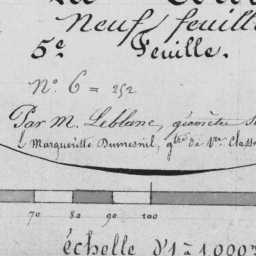 Neuf feuill
5e Feuille.
No 6 = 252
Par M. Leblanc, géomètre
Margueritte Dumesnil, gtre de 1re Class
70 80 90 100
échelle d'1 à 1000